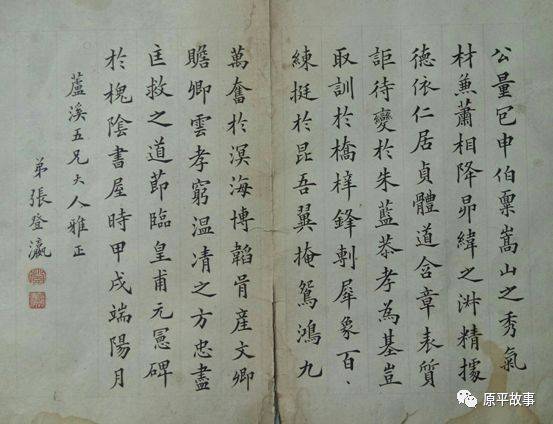 公量包申伯稟嵩山之秀氣
材兼蕭相降昴緯之淑精據
德依仁居貞體道含章表質
詎待變於朱藍恭孝為基豈
取訓於橋梓鋒剸犀象百、
練挺於昆吾翼掩鴛鴻九
萬奮於溟海博韜胥產文卿
贍卿雲孝窮溫凊之方忠盡
匡救之道節臨皇甫元憲碑
於槐陰書屋時甲戌端陽月
蘆溪五兄大人雅正
弟張登瀛
原平故事